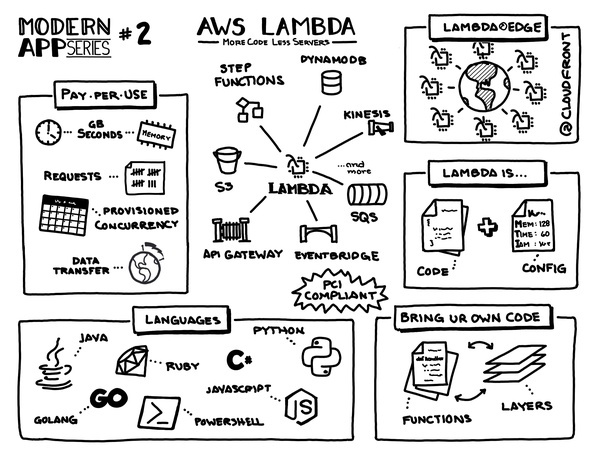 MODERN
APP SERIES #2
AWS LAMBDA
MORE CODE LESS SERVERS
PAY-PER-USE
GB
SECONDS
MEMORY
REQUESTS
PROVISIONED
CONCURRENCY
DATA
TRANSFER
STEP
FUNCTIONS
DYNAMODB
KINESIS
...and
more
LAMBDA
S3
SQS
API GATEWAY
EVENTBRIDGE
PCI
COMPLIANT
LAMBDA@EDGE
@CLOUDFRONT
LAMBDA IS...
CODE
MEM: 128
TIME: 60
CONFIG
LANGUAGES
JAVA
RUBY
C#
PYTHON
GOLANG
GO
POWERSHELL
JAVASCRIPT
JS
BRING UR OWN CODE
def handler
FUNCTIONS
LAYERS